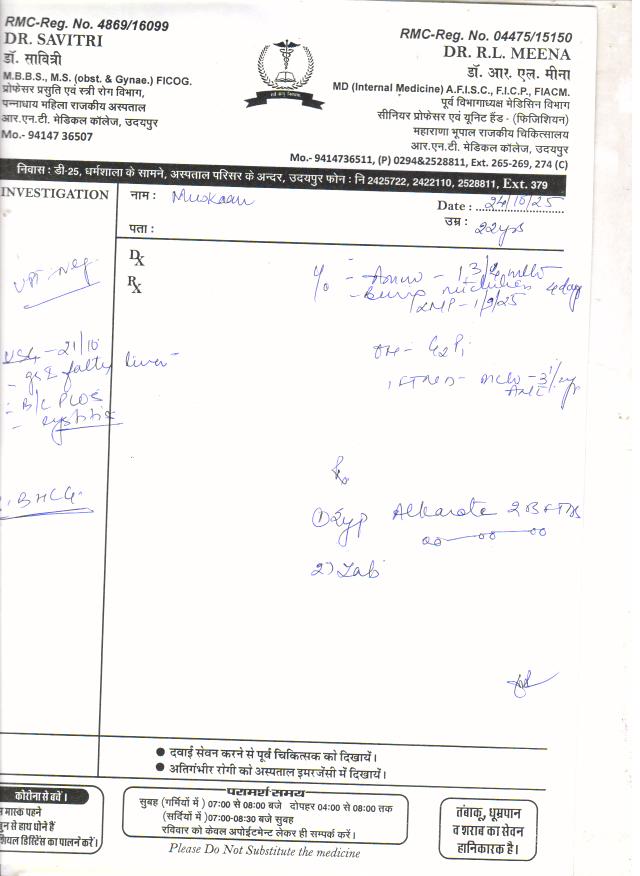 RMC-Reg. No. 4869/16099
DR. SAVITRI
डॉ. सावित्री
M.B.B.S., M.S. (obst. & Gynae.) FICOG.
प्रोफेसर प्रसूति एवं स्त्री रोग विभाग,
पन्नाधाय महिला राजकीय अस्पताल
आर.एन.टी. मेडिकल कॉलेज, उदयपुर
Mo.- 94147 36507
RMC-Reg. No. 04475/15150
DR. R.L. MEENA
डॉ. आर. एल. मीना
MD (Internal Medicine) A.F.I.S.C., F.I.C.P., FIACM.
पूर्व विभागाध्यक्ष मेडिसिन विभाग
सीनियर प्रोफेसर एवं यूनीट हैड - (फिजिशियन)
महाराणा भूपाल राजकीय चिकित्सालय
आर.एन.टी. मेडिकल कॉलेज, उदयपुर
Mo.- 9414736511, (P) 0294&2528811, Ext. 265-269, 274 (C)
निवास : डी-25, धर्मशाला के सामने, अस्पताल परिसर के अन्दर, उदयपुर फोन : नि 2425722, 2422110, 2528811, Ext. 379
INVESTIGATION
नाम : Muskaan
Date : 24/10/25
पता :
उम्र : 22yrs
Dx
Rx
UPT - Neg
LMP - 1/9/25
USG - 21/10
fatty liver
B/L PCOS
cystitis
OH - G2P1
BHCG
Rx
1) Syp Alkarate
2) Tab
● दवाई सेवन करने से पूर्व चिकित्सक को दिखायें।
● अतिगंभीर रोगी को अस्पताल इमरजेंसी में दिखायें।
कोरोना से बचें।
मास्क पहने
से हाथ धोने हैं
डिस्टेंस का पालन करें।
परामर्श समय
सुबह (गर्मियों में ) 07:00 से 08:00 बजे दोपहर 04:00 से 08:00 तक
(सर्दियों में )07:00-08:30 बजे सुबह
रविवार को केवल अपोईटमेन्ट लेकर ही सम्पर्क करें।
Please Do Not Substitute the medicine
तंबाकू, धूम्रपान
व शराब का सेवन
हानिकारक है।